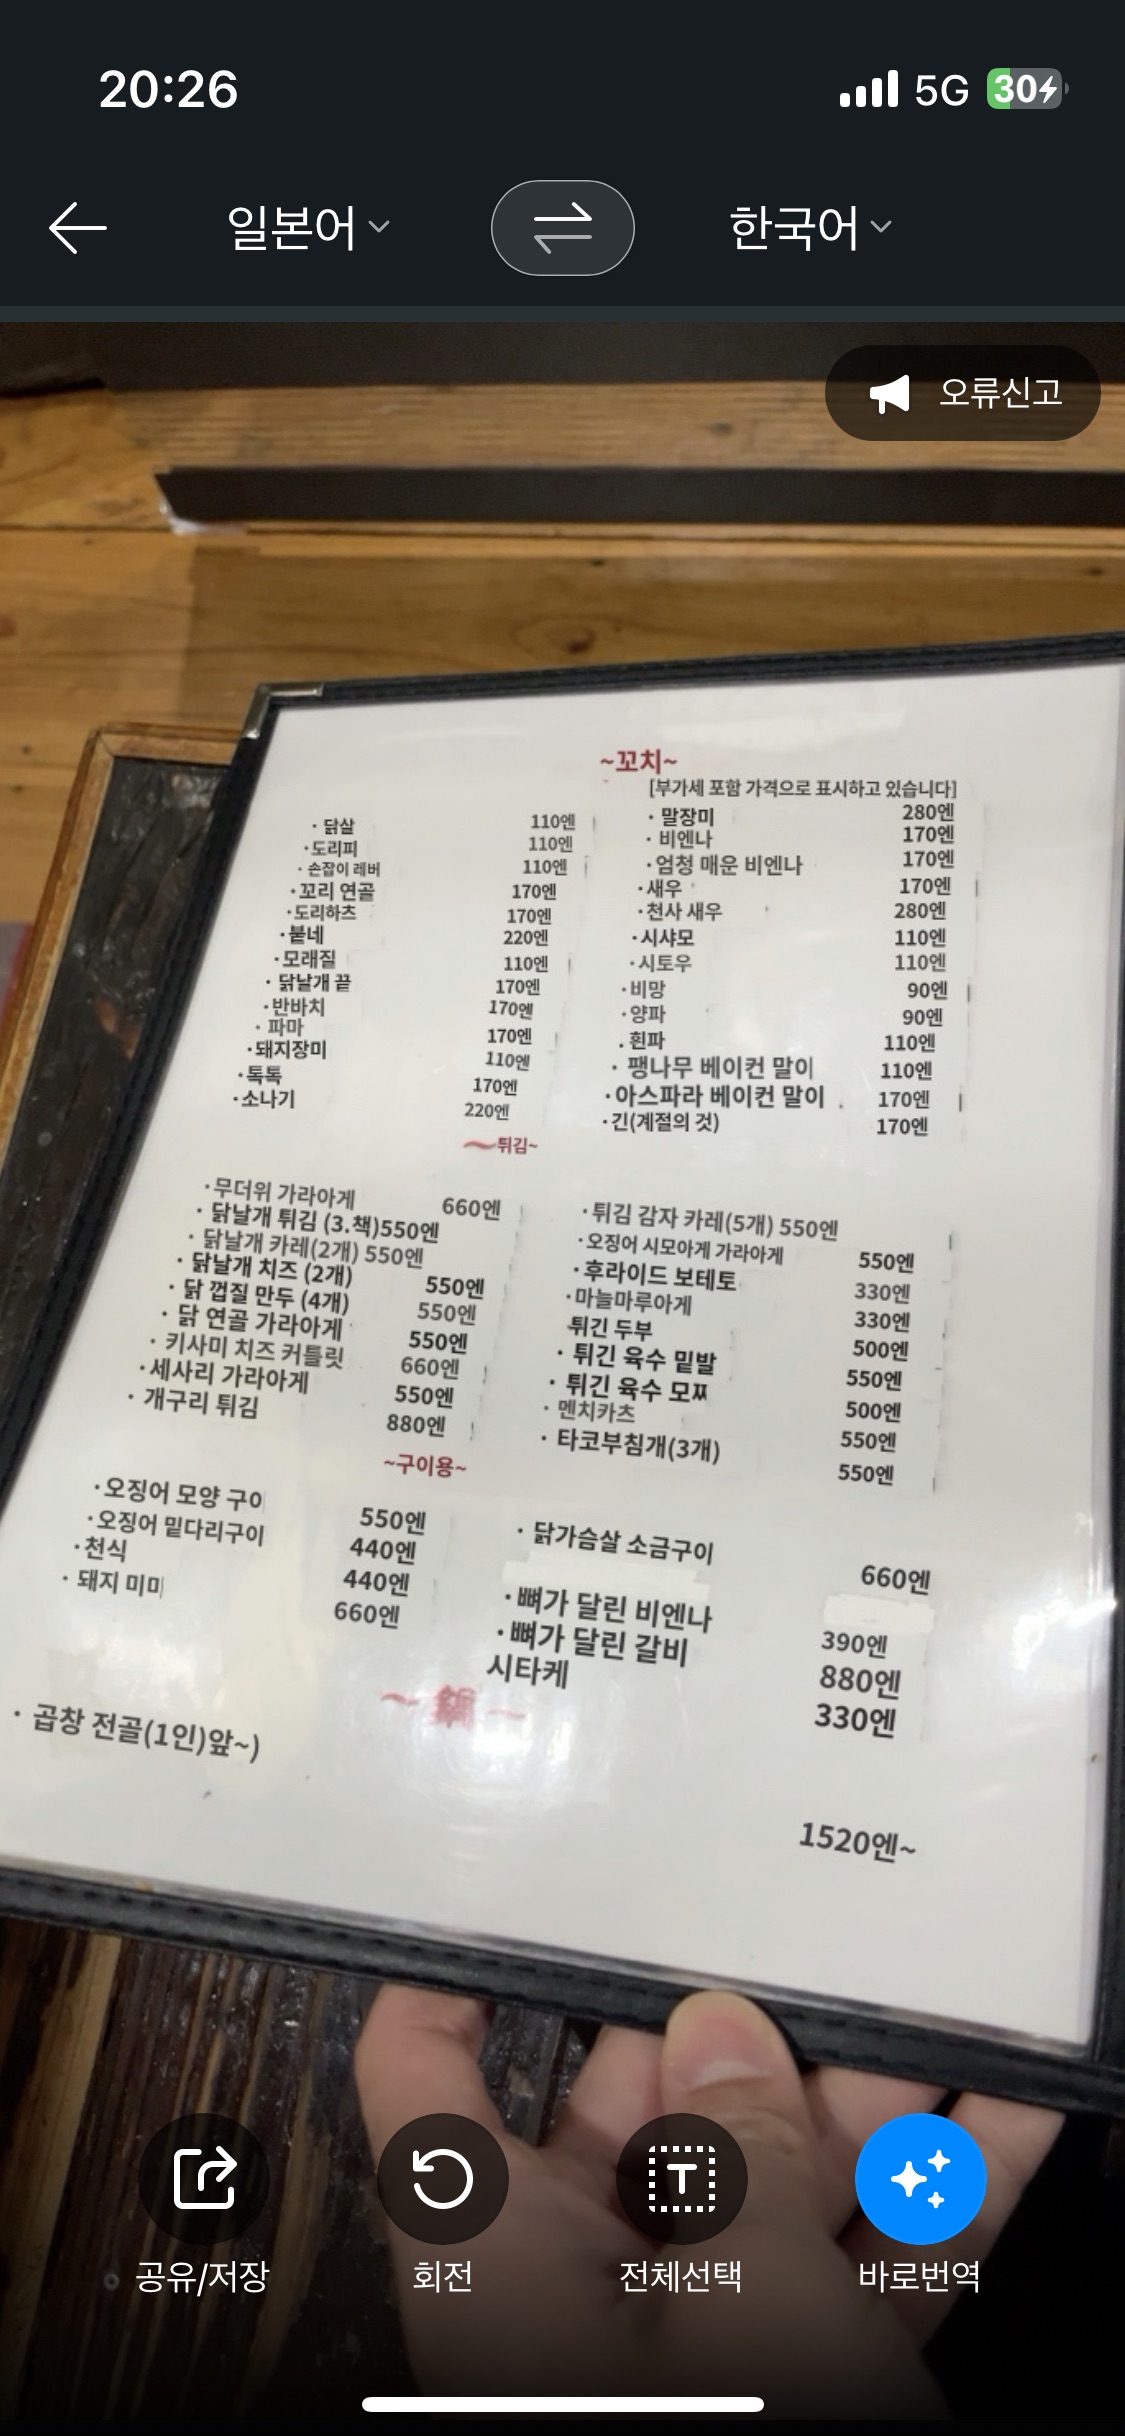 20:26
5G 30
일본어
한국어
오류신고
~꼬치~
[부가세 포함 가격으로 표시하고 있습니다]
· 닭살 110엔
· 도리피 110엔
· 손잡이 레버 110엔
· 꼬리 연골 170엔
· 도리하츠 170엔
· 붙네 220엔
· 모래질 110엔
· 닭날개 끝 170엔
· 반바치 170엔
· 파마 170엔
· 돼지장미 110엔
· 톡톡 170엔
· 소나기 220엔
· 말장미 280엔
· 비엔나 170엔
· 엄청 매운 비엔나 170엔
· 새우 170엔
· 천사 새우 280엔
· 시샤모 110엔
· 시토우 110엔
· 비망 90엔
· 양파 90엔
· 흰파 110엔
· 팽나무 베이컨 말이 110엔
· 아스파라 베이컨 말이 170엔
· 긴(계절의 것) 170엔
~튀김~
· 무더위 가라아게 660엔
· 닭날개 튀김 (3.책)550엔
· 닭날개 카레(2개) 550엔
· 닭날개 치즈 (2개) 550엔
· 닭 껍질 만두 (4개) 550엔
· 닭 연골 가라아게 550엔
· 키사미 치즈 커틀릿 660엔
· 세사리 가라아게 550엔
· 개구리 튀김 880엔
· 튀김 감자 카레(5개) 550엔
· 오징어 시모아게 가라아게 550엔
· 후라이드 보테토 330엔
· 마늘마루아게 330엔
튀긴 두부 500엔
· 튀긴 육수 밑발 550엔
· 튀긴 육수 모찌 500엔
· 멘치카츠 550엔
· 타코부침개(3개) 550엔
~구이용~
· 오징어 모양 구이 550엔
· 오징어 밑다리구이 440엔
· 천식 440엔
· 돼지 미미 660엔
· 닭가슴살 소금구이 660엔
· 뼈가 달린 비엔나 390엔
· 뼈가 달린 갈비 880엔
시타케 330엔
~ 鍋 ~
· 곱창 전골(1인)앞~)
1520엔~
공유/저장
회전
전체선택
바로번역